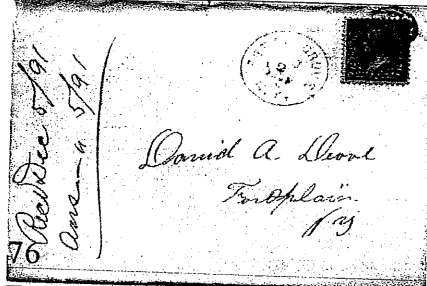 Recd Dec 5/91
Ans — " 5/91
David A. Devoe
Fortplain
Ny
76